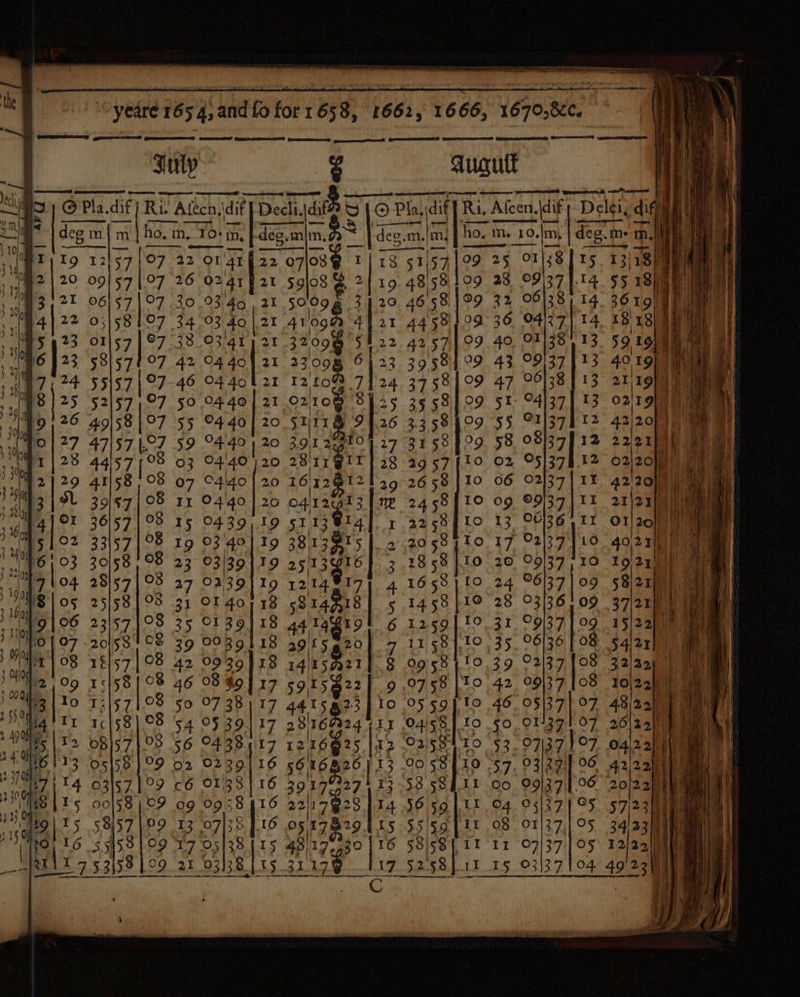 the
yeare 1654, and ſo for 1658, 1662, 1666, 1670,&c.
July Auguſt
☉ Pla.dif Ri. Aſcen. dif Decli. dif ☉ Pla. dif Ri. Aſcen. dif Decli. dif
deg m m ho. m. 10. m. deg. m m. deg. m. m. ho. m. 10. m. deg. m. m.
1 19 12 57 07 22 01 41 22 07 08 1 18 51 57 09 25 01 38 15 13 18
2 20 09 57 07 26 02 41 21 59 08 2 19 48 58 09 28 09 37 14 55 18
3 21 06 57 07 30 03 40 21 50 09 3 20 46 58 09 32 06 38 14 36 19
4 22 03 58 07 34 03 40 21 41 09 4 21 44 58 09 36 04 37 14 18 18
5 23 01 57 07 38 03 41 21 32 09 5 22 42 57 09 40 01 38 13 59 19
6 23 58 57 07 42 04 40 21 23 09 6 23 39 58 09 43 09 37 13 40 19
7 24 55 57 07 46 04 40 21 12 10 7 24 37 58 09 47 06 38 13 21 19
8 25 52 57 07 50 04 40 21 02 10 8 25 35 58 09 51 04 37 13 02 19
9 26 49 58 07 55 04 40 20 51 11 9 26 33 58 09 55 01 37 12 42 20
10 27 47 57 07 59 04 40 20 39 12 10 27 31 58 09 58 08 37 12 22 21
11 28 44 57 08 03 04 40 20 28 11 11 28 29 57 10 02 05 37 12 02 20
12 29 41 58 08 07 04 40 20 16 12 12 29 26 58 10 06 02 37 11 42 20
13 ♌ 39 57 08 11 04 40 20 04 12 13 ♍ 24 58 10 09 09 37 11 21 21
14 01 36 57 08 15 04 39 19 51 13 14 1 22 58 10 13 06 36 11 01 20
15 02 33 57 08 19 03 40 19 38 13 15 2 20 58 10 17 02 37 10 40 21
16 03 30 58 08 23 03 39 19 25 13 16 3 18 58 10 20 09 37 10 19 21
17 04 28 57 08 27 02 39 19 12 14 17 4 16 58 10 24 06 37 09 58 21
18 05 25 58 08 31 01 40 18 58 14 18 5 14 58 10 28 03 36 09 37 21
19 06 23 57 08 35 01 39 18 44 14 19 6 12 59 10 31 09 37 09 15 22
20 07 20 58 08 39 00 39 18 29 15 20 7 11 58 10 35 06 36 08 54 21
21 08 18 57 08 42 09 39 18 14 15 21 8 09 58 10 39 02 37 08 32 22
22 09 15 58 08 46 08 39 17 59 15 22 9 07 58 10 42 09 37 08 10 22
23 10 13 57 08 50 07 38 17 44 15 23 10 05 59 10 46 05 37 07 48 22
24 11 10 58 08 54 05 39 17 28 16 24 11 04 58 10 50 01 37 07 26 22
25 12 08 57 08 56 04 38 17 12 16 25 12 02 58 10 53 07 37 07 04 22
26 13 05 58 09 02 02 39 16 56 16 26 13 00 58 10 57 03 37 06 42 22
27 14 03 57 09 06 01 38 16 39 17 27 13 58 58 11 00 09 37 06 20 22
28 15 00 58 09 09 09 38 16 22 17 28 14 56 59 11 04 05 37 05 57 23
29 15 58 57 09 13 07 38 16 05 17 29 15 55 59 11 08 01 37 05 34 23
30 16 55 58 09 17 05 38 15 48 17 30 16 58 58 11 11 07 37 05 12 22
31 17 53 58 09 21 03 38 15 31 17 17 52 58 11 15 03 37 04 49 23
C